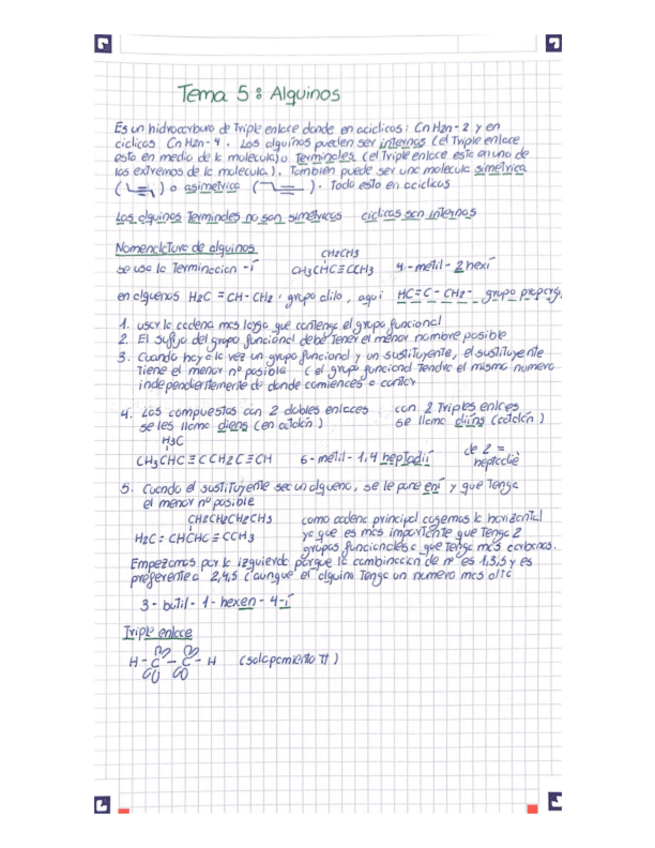 Tema 5: Alquinos
Es un hidrocarburo de Triple enlace donde en aciclicos: CnH2n-2 y en
ciclicos CnH2n-4. Los alquinos pueden ser internos (el Triple enlace
esta en medio de la molecula) o Terminales (el Triple enlace esta en uno de
los extremos de la molecula). Tambien puede ser una molecula simetrica
( ) o asimetrica ( ). Todo esto en aciclicos
Los alquinos Terminales no son simetricos ciclicos son internos
Nomenclatura de alquinos
CH2CH3
se usa la Terminacion -í CH3CHC≡CCH3 4-metil-2hexí
en alquenos H2C=CH-CH2: grupo alilo, aqui HC≡C-CH2- grupo proparg
1. usar la cadena mas larga que contenga el grupo funcional
2. El sufijo del grupo funcional debe Tener el menor nombre posible
3. Cuando hay a la vez un grupo funcional y un sustituyente, el sustituyente
Tiene el menor nº posible (el grupo funcional Tendra el mismo numero
independientemente de donde comiences a contar
4. Los compuestos con 2 dobles enlaces con 2 Triples enlces
se les llama diens (en catalán) se llama diíns (catalán)
H3C
CH3CHC≡CCH2C≡CH 6-metil-1,4 heptadií de 2 =
heptadiè
5. Cuando el sustituyente sea un alqueno, se le pone ení y que Tenga
el menor nº posible
CH2CH2CH2CH3 como cadena principal cogemos la horizontal
H2C=CHCHC≡CCH3 ya que es mas importante que Tenga 2
grupos funcionales a que Tenga mas carbonos.
Empezamos por la izquierda porque la combinacion de nº es 1,3,5 y es
preferente a 2,4,5 (aunque el alquino Tenga un numero mas alto
3-butil-1-hexen-4-í
Triple enlace
H-C-C-H (solapamiento π)